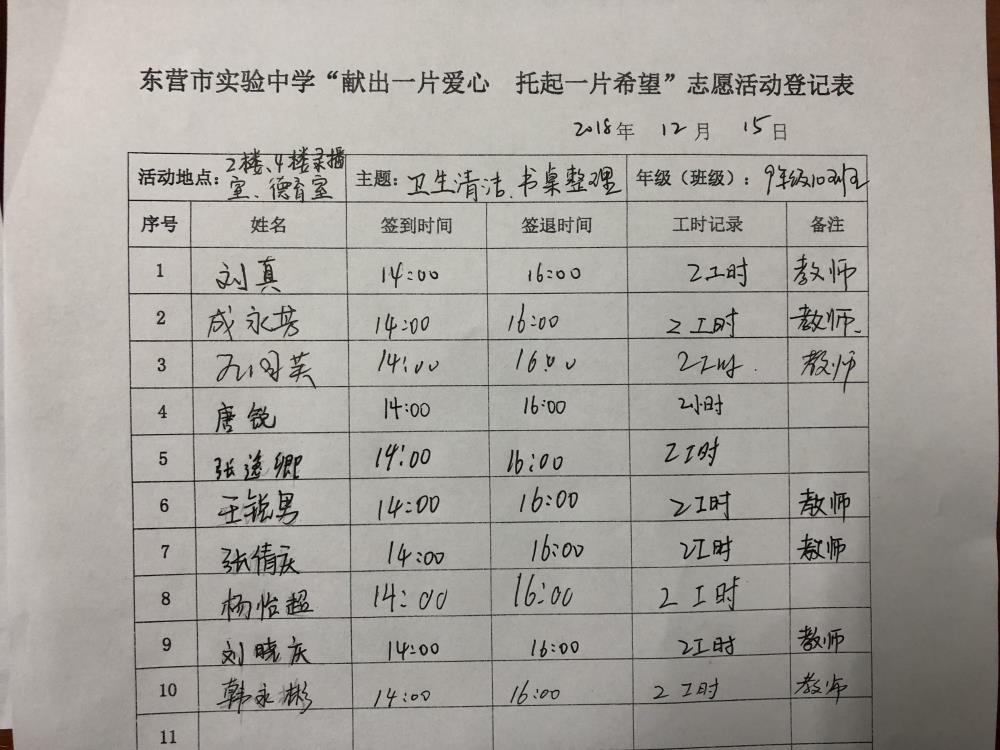 东营市实验中学“献出一片爱心 托起一片希望”志愿活动登记表
2018年 12月 15日
活动地点：2楼、4楼录播室、德育室 主题：卫生清洁、书桌整理 年级（班级）：9年级10班
序号 姓名 签到时间 签退时间 工时记录 备注
1 刘真 14:00 16:00 2工时 教师
2 成永芳 14:00 16:00 2工时 教师
3 14:00 16:00 2工时 教师
4 唐锐 14:00 16:00 2小时
5 张逸卿 14:00 16:00 2工时
6 王锐男 14:00 16:00 2工时 教师
7 张倩庆 14:00 16:00 2工时 教师
8 杨怡超 14:00 16:00 2工时
9 刘晓庆 14:00 16:00 2工时 教师
10 韩永彬 14:00 16:00 2工时 教师
11